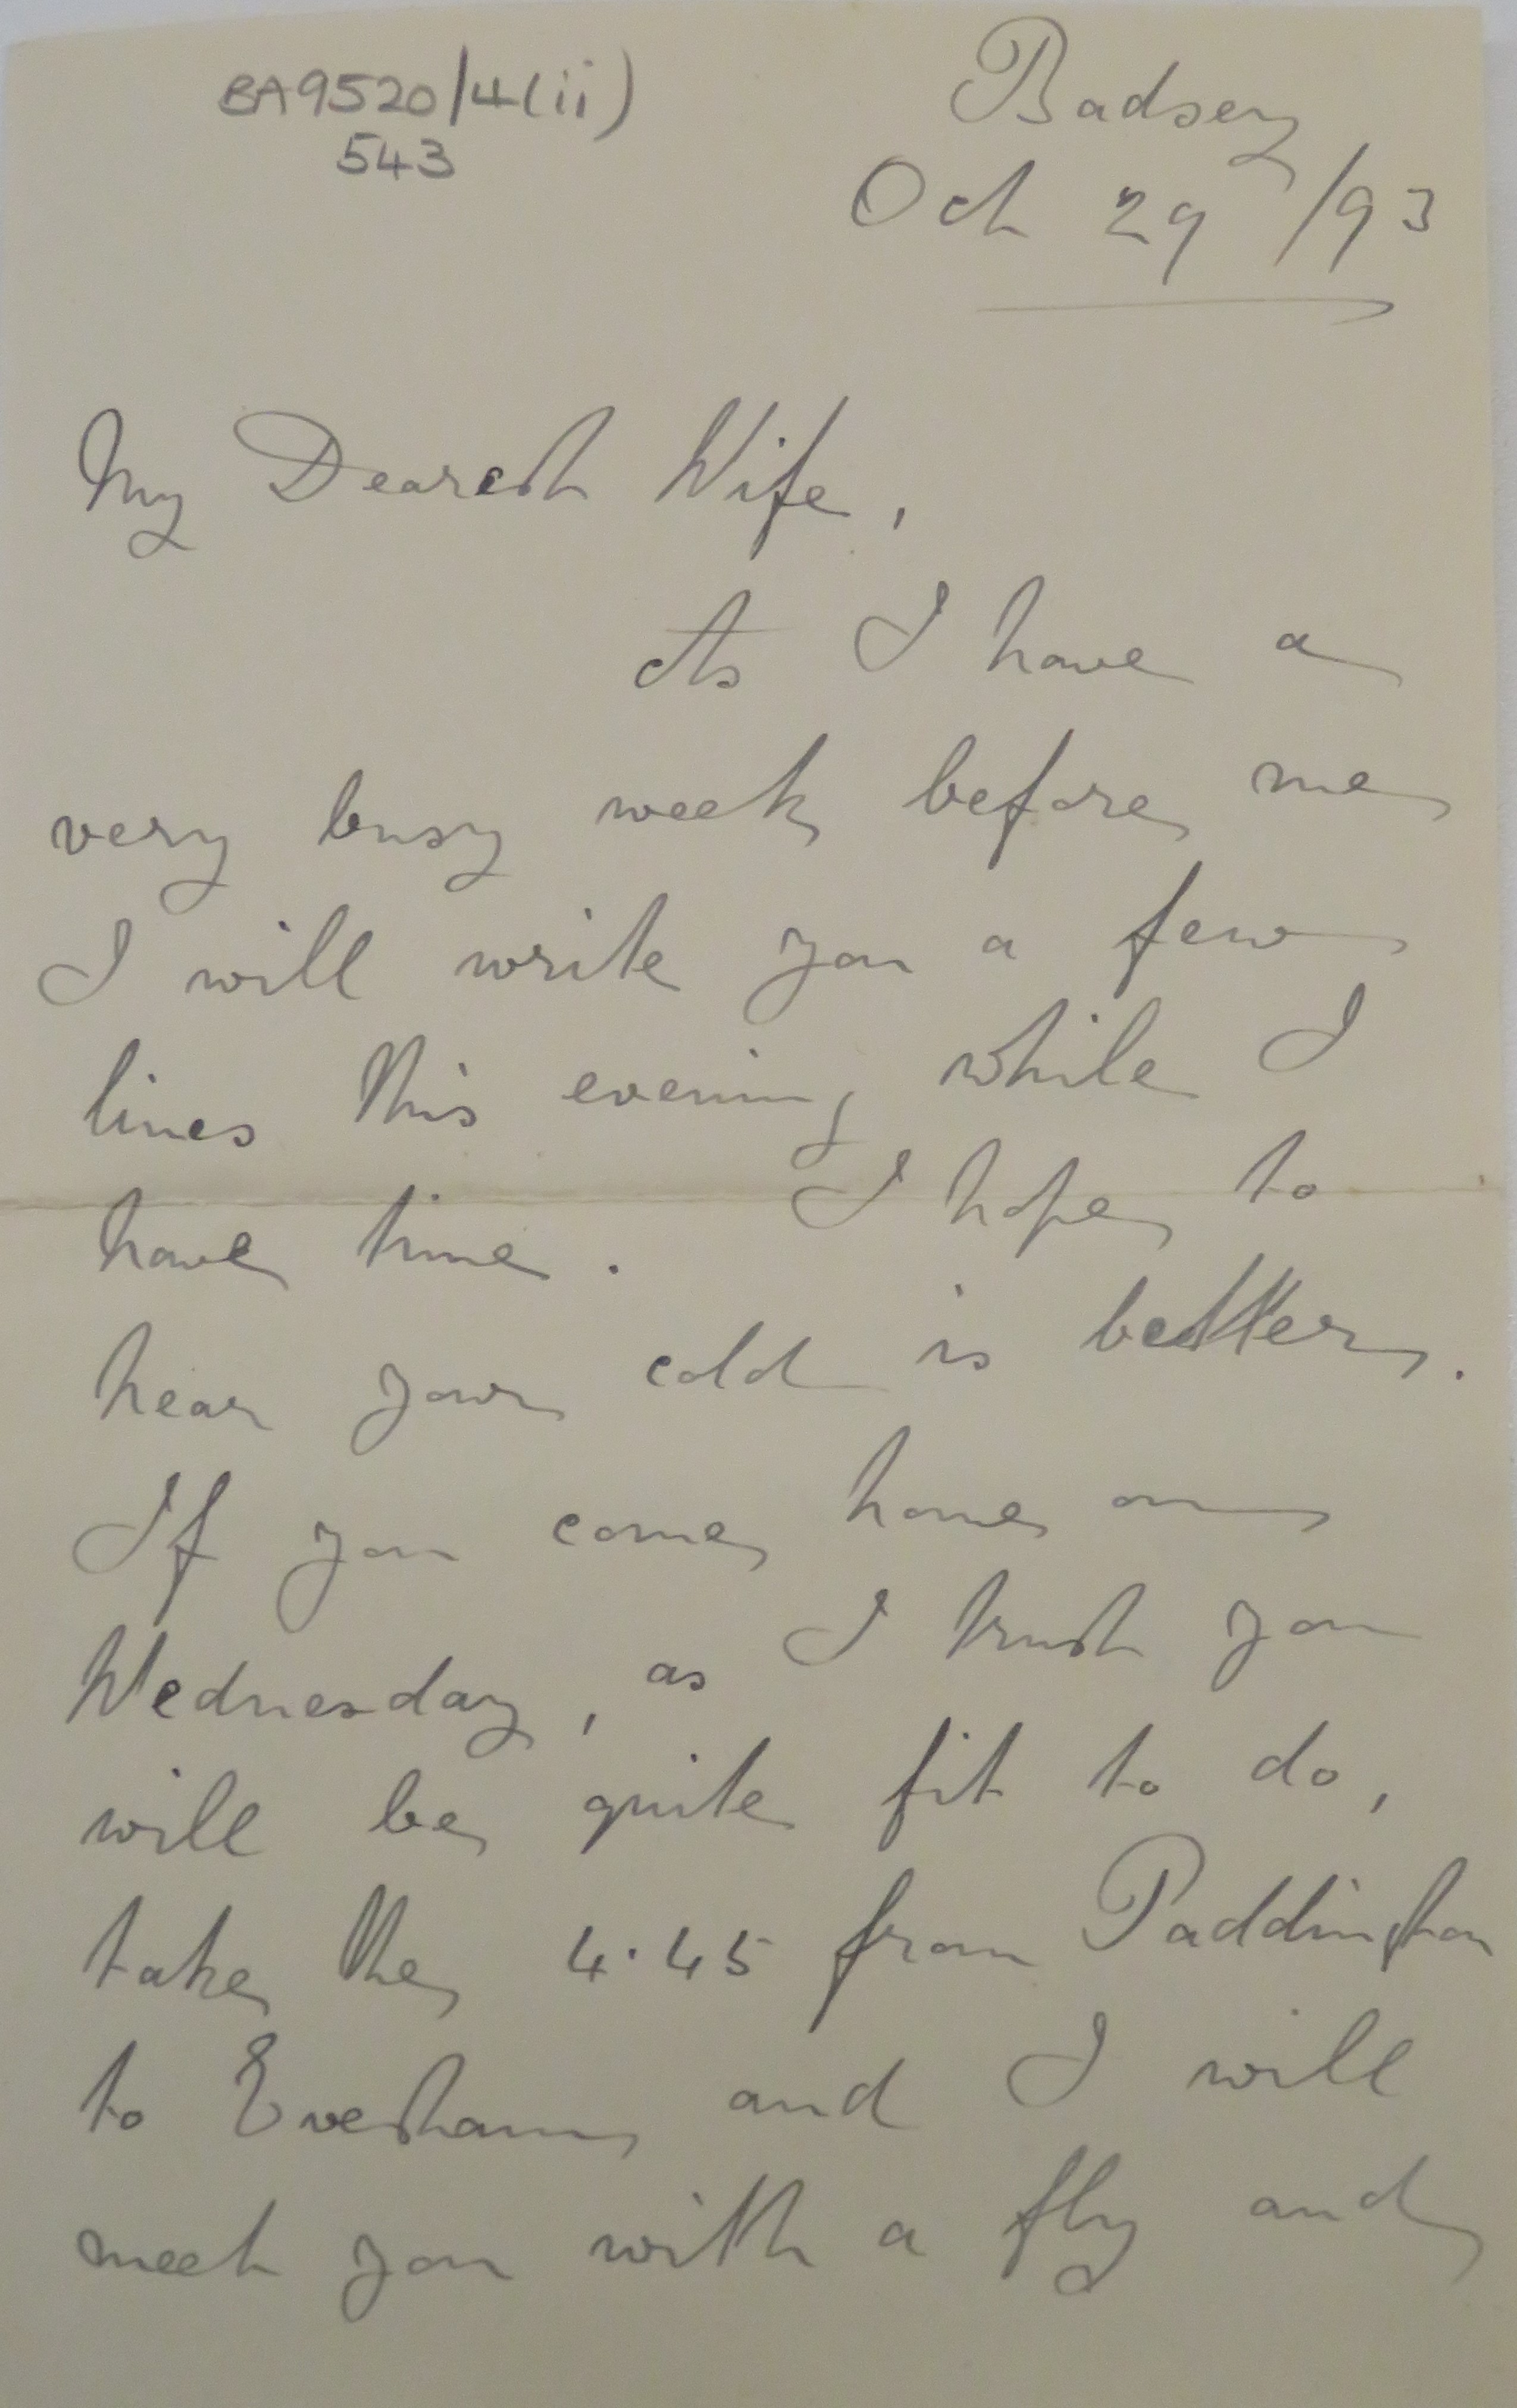 BA9520/4(ii)
543
Badsey
Oct 29/93
My Dearest Wife,
As I have a
very busy week before me
I will write you a few
lines this evening while I
have time. I hope to
hear your cold is better.
If you come home on
Wednesday, as I trust you
will be quite fit to do,
take the 4.45 from Paddington
to Evesham and I will
meet you with a fly and